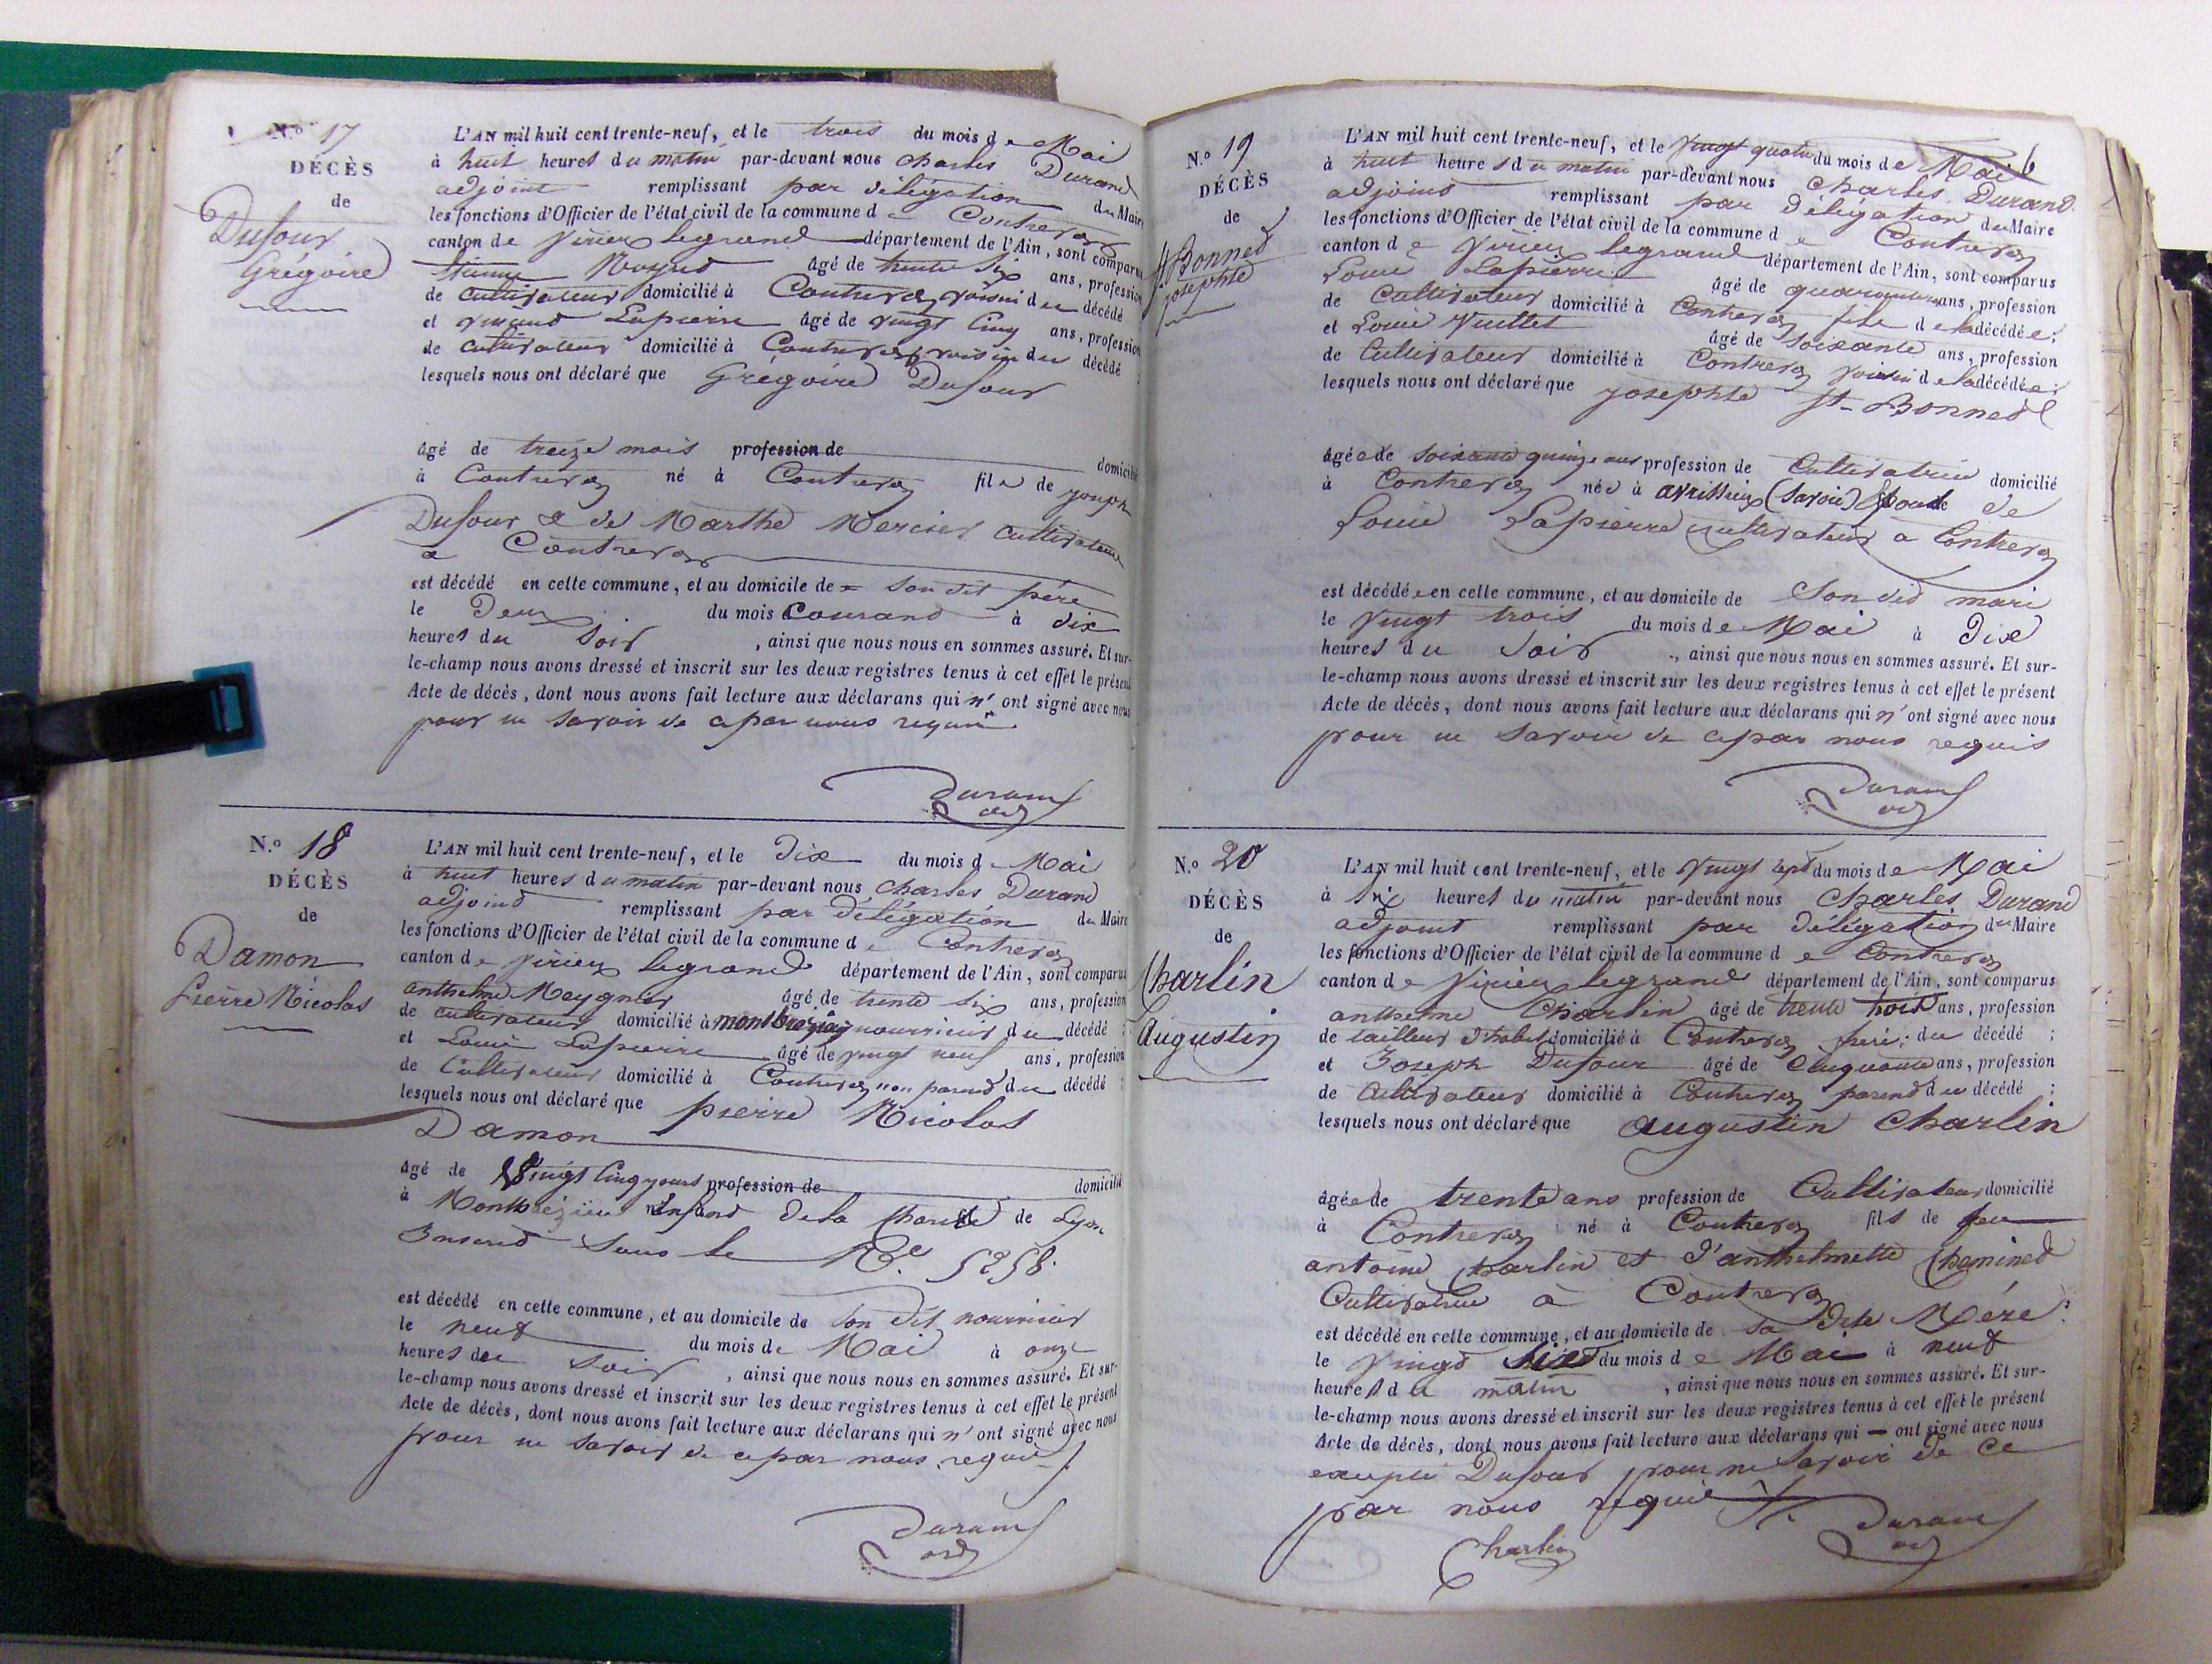 N.º 17
DÉCÈS
de
Dufour
Grégoire
L'AN mil huit cent trente-neuf, et le trois du mois de Mai
à huit heures du matin par-devant nous Charles Durand
adjoint remplissant par délégation du Maire
les fonctions d'Officier de l'état civil de la commune de Contrevoz
canton de Virieu legrand département de l'Ain, sont comparus
âgé de trente six ans, profession
de Cultivateur domicilié à Contrevoz voisin du décédé
et Lapierre âgé de vingt cinq ans, profession
de Cultivateur domicilié à Contrevoz voisin du décédé ;
lesquels nous ont déclaré que Grégoire Dufour
âgé de treize mois profession de domicilié
à Contrevoz né à Contrevoz fils de joseph
Dufour & de Marthe Mercier Cultivateurs
a Contrevoz
est décédé en cette commune, et au domicile de son dit père
le Deux du mois Courant à dix
heures du soir , ainsi que nous nous en sommes assuré. Et sur-
le-champ nous avons dressé et inscrit sur les deux registres tenus à cet effet le présent
Acte de décès, dont nous avons fait lecture aux déclarans qui n' ont signé avec nous
pour ne savoir de ce par nous requis
Durand
adj
N.º 18
DÉCÈS
de
Damon
Pierre Nicolas
L'AN mil huit cent trente-neuf, et le Dix du mois de Mai
à huit heures du matin par-devant nous Charles Durand
adjoint remplissant par délégation du Maire
les fonctions d'Officier de l'état civil de la commune de Contrevoz
canton de Virieu legrand département de l'Ain, sont comparus
anthelme Meygnier âgé de trente six ans, profession
de cultivateur domicilié à nourricier du décédé ;
et Louis Lapierre âgé de vingt neuf ans, profession
de Cultivateur domicilié à Contrevoz non parent du décédé ;
lesquels nous ont déclaré que pierre Nicolas
Damon
âgé de Vingt Cinq jours profession de domicilié
à Enfant de la Charité de Lyon
Inscrit sous le N.º 5258.
est décédé en cette commune, et au domicile de son dit nourricier
le neuf du mois de Mai à onze
heures du soir , ainsi que nous nous en sommes assuré. Et sur-
le-champ nous avons dressé et inscrit sur les deux registres tenus à cet effet le présent
Acte de décès, dont nous avons fait lecture aux déclarans qui n' ont signé avec nous
pour ne savoir de ce par nous requis
Durand
adj
6
N.º 19
DÉCÈS
de
St Bonnet
josephte
L'AN mil huit cent trente-neuf, et le Vingt quatre du mois de Mai
à huit heures du matin par-devant nous Charles Durand
adjoint remplissant par délégation du Maire
les fonctions d'Officier de l'état civil de la commune de Contrevoz
canton de Virieu legrand département de l'Ain, sont comparus
Louis Lapierre âgé de ans, profession
de Cultivateur domicilié à Contrevoz fils de la décédée ;
et Louis Vuillet âgé de soixante ans, profession
de Cultivateur domicilié à Contrevoz voisin de la décédée ;
lesquels nous ont déclaré que josephte St-Bonnet
âgée de soixante quinze ans profession de Cultivatrice domicilié
à Contrevoz née à (Savoie) Epouse de
Louis Lapierre cultivateur a Contrevoz
est décédée en cette commune, et au domicile de son dit mari
le Vingt trois du mois de Mai à Dix
heures du soir , ainsi que nous nous en sommes assuré. Et sur-
le-champ nous avons dressé et inscrit sur les deux registres tenus à cet effet le présent
Acte de décès, dont nous avons fait lecture aux déclarans qui n' ont signé avec nous
pour ne savoir de ce par nous requis
Durand
adj
N.º 20
DÉCÈS
de
Charlin
Augustin
L'AN mil huit cent trente-neuf, et le Vingt sept du mois de Mai
à Six heures du matin par-devant nous Charles Durand
adjoint remplissant par délégation du Maire
les fonctions d'Officier de l'état civil de la commune de Contrevoz
canton de Virieu legrand département de l'Ain, sont comparus
anthelme Charlin âgé de trente trois ans, profession
de tailleur d'habit domicilié à Contrevoz frère du décédé ;
et Joseph Dufour âgé de Cinquante ans, profession
de Cultivateur domicilié à Contrevoz parent du décédé ;
lesquels nous ont déclaré que augustin Charlin
âgée de trente ans profession de Cultivateur domicilié
à Contrevoz né à Contrevoz fils de feu
antoine Charlin et d'anthelmette Cheminet
Cultivatrice à Contrevoz
est décédé en cette commune, et au domicile de sa dite Mère
le Vingt Six du mois de Mai à neuf
heures du matin , ainsi que nous nous en sommes assuré. Et sur-
le-champ nous avons dressé et inscrit sur les deux registres tenus à cet effet le présent
Acte de décès, dont nous avons fait lecture aux déclarans qui — ont signé avec nous
excepté Dufour pour ne savoir de ce
par nous requis
Charlin
Durand
adj